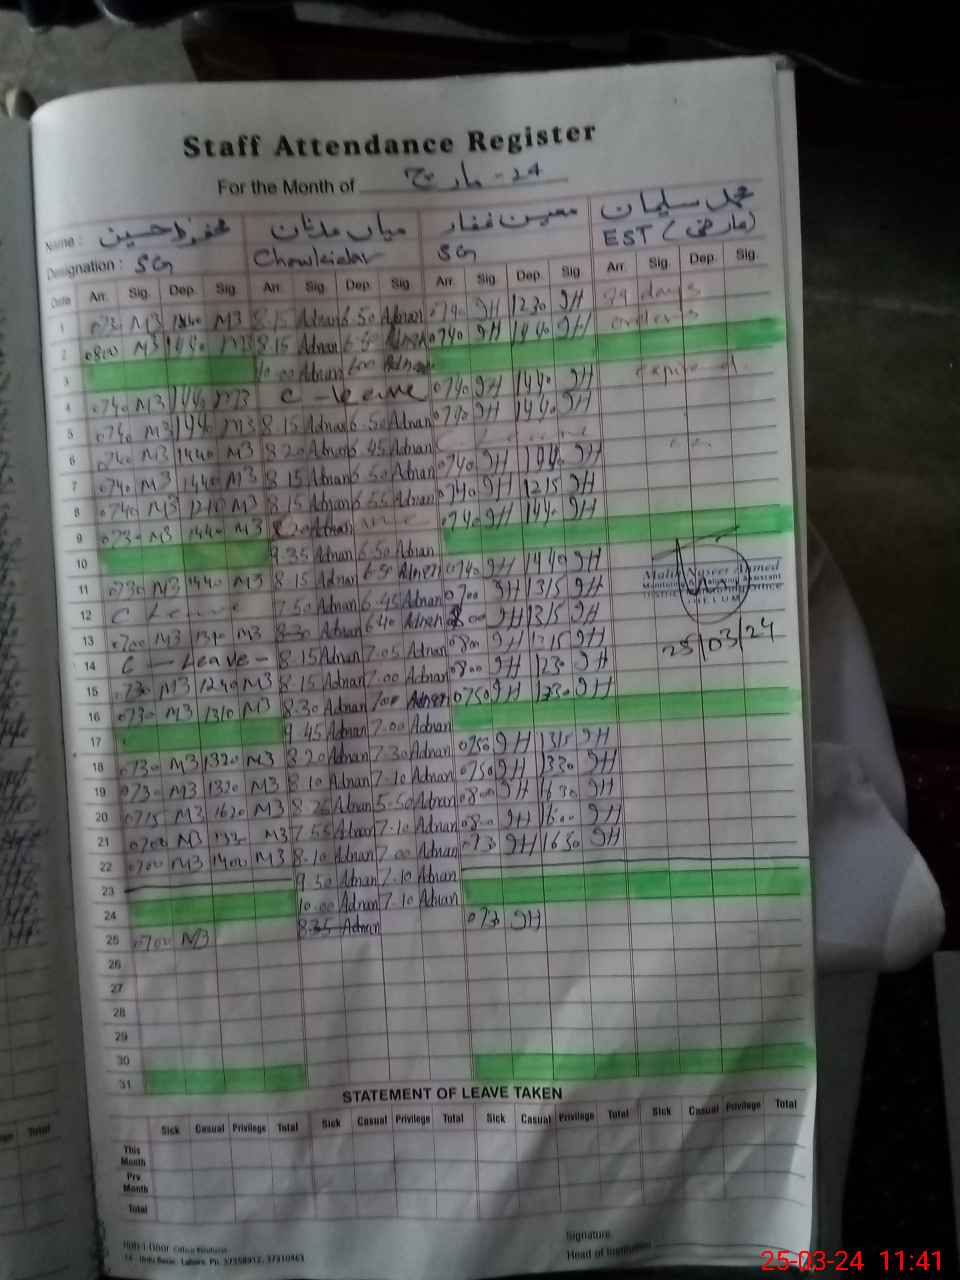 Staff Attendance Register
For the Month of مارچ - 24
Name : محفوظ حسین میاں عدنان معین غفار محمد سلیمان
Designation : SG Chowkidar SG EST (عارضی)
Date Arr. Sig. Dep. Sig. Arr. Sig. Dep. Sig. Arr. Sig. Dep. Sig. Arr. Sig. Dep. Sig.
1 M3 M3 8.15 Adnan 6.50 Adnan 0740 JH 1230 JH 89 days
2 0800 M3 1440 M3 8.15 Adnan Adnan 0740 JH 1440 JH orders
3 10.00 Adnan 6.00 Adnan expired
4 0740 M3 1440 M3 C - Leave 0740 JH 1440 JH
5 0740 M3 1440 M3 8.15 Adnan 6.50 Adnan 0740 JH 1440 JH
6 0740 M3 1440 M3 8.20 Adnan 6.45 Adnan C Leave
7 0740 M3 1440 M3 8.15 Adnan 6.50 Adnan 0740 JH 1440 JH
8 0740 M3 1210 M3 8.15 Adnan 6.55 Adnan 0740 JH 1215 JH
9 0730 M3 1440 M3 Adnan 0740 JH 1440 JH
10 9.35 Adnan 6.50 Adnan
11 0730 M3 1440 M3 8.15 Adnan 6.50 Adnan 0740 JH 1440 JH
12 C Leave 7.50 Adnan 6.45 Adnan 0700 JH 1315 JH
13 0700 M3 1310 M3 8.30 Adnan 6.40 Adnan JH 1315 JH
14 C - Leave - 8.15 Adnan 7.05 Adnan 0800 JH 1315 JH
15 0730 M3 1240 M3 8.15 Adnan 7.00 Adnan 0800 JH 1230 JH
16 0730 M3 1310 M3 8.30 Adnan 7.00 Adnan 0750 JH 1330 JH
17 9.45 Adnan 7.00 Adnan
18 0730 M3 1320 M3 8.20 Adnan 7.30 Adnan 0750 JH 1315 JH
19 0730 M3 1320 M3 8.10 Adnan 7.10 Adnan 0750 JH 1330 JH
20 0715 M3 1620 M3 8.25 Adnan 5.50 Adnan 0800 JH 1630 JH
21 0700 M3 1330 M3 7.55 Adnan 7.10 Adnan 0800 JH 1600 JH
22 0700 M3 1400 M3 8.10 Adnan 7.00 Adnan 0730 JH 1630 JH
23 9.50 Adnan 7.10 Adnan
24 10.00 Adnan 7.10 Adnan
25 0700 M3 8.35 Adnan 0730 JH
26
27
28
29
30
31
Naseer Ahmed
Assistant
JHELUM
25/03/24
STATEMENT OF LEAVE TAKEN
Sick Casual Privilege Total Sick Casual Privilege Total Sick Casual Privilege Total Sick Casual Privilege Total
This Month
Prv Month
Total
Signature
Head of Institution
Urdu Bazar, Lahore. Ph: 37358912, 37310463
Total
25-03-24 11:41